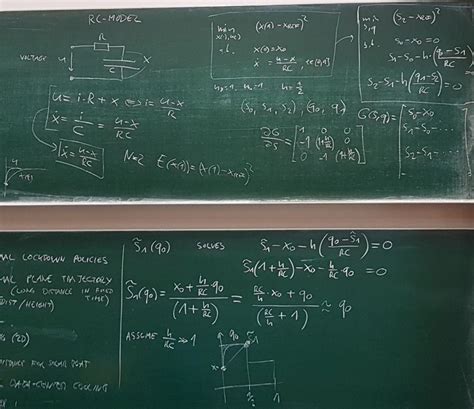 RC-MODEL
VOLTAGE
R
u
C
x
u = i·R + x ⇔ i = (u-x)/R
ẋ = i/C = (u-x)/RC
ẋ = (u-x)/RC
N=2 E(x(1)) = (x(1) - x_REF)²
min x(·), u(·) (x(1) - x_REF)²
s.t. x(0) = x₀
ẋ = (u-x)/RC, t∈[0,1]
u₀=1, u₁=1 h=1/2
(s₀, s₁, s₂), (q₀, q₁)
∂G/∂s = [ 1 0 0
-1 (1+h/RC) 0
0 -1 (1+h/RC) ]
min s,q (s₂ - x_REF)²
s.t. s₀ - x₀ = 0
s₁ - s₀ - h·(q₀-s₁)/RC
s₂ - s₁ - h(q₁-s₂)/RC = 0
G(s,q) = [ s₀ - x₀
s₁ - s₀ - ...
s₂ - s₁ - ...
LOCKDOWN POLICIES
PLANE TRAJECTORY
(LONG DISTANCE IN FIXED
TIME)
/HEIGHT)
(2D)
DATA-CENTER COOLING
s̃₁(q₀) SOLVES s̃₁ - x₀ - h((q₀ - s̃₁)/RC) = 0
s̃₁(1+h/RC) - x₀ - h/RC q₀ = 0
s̃₁(q₀) = (x₀ + h/RC q₀)/(1+h/RC) = (RC/h·x₀ + q₀)/(RC/h + 1) ≈ q₀
ASSUME h/RC ≫ 1
q₀
s̃₁
x₀